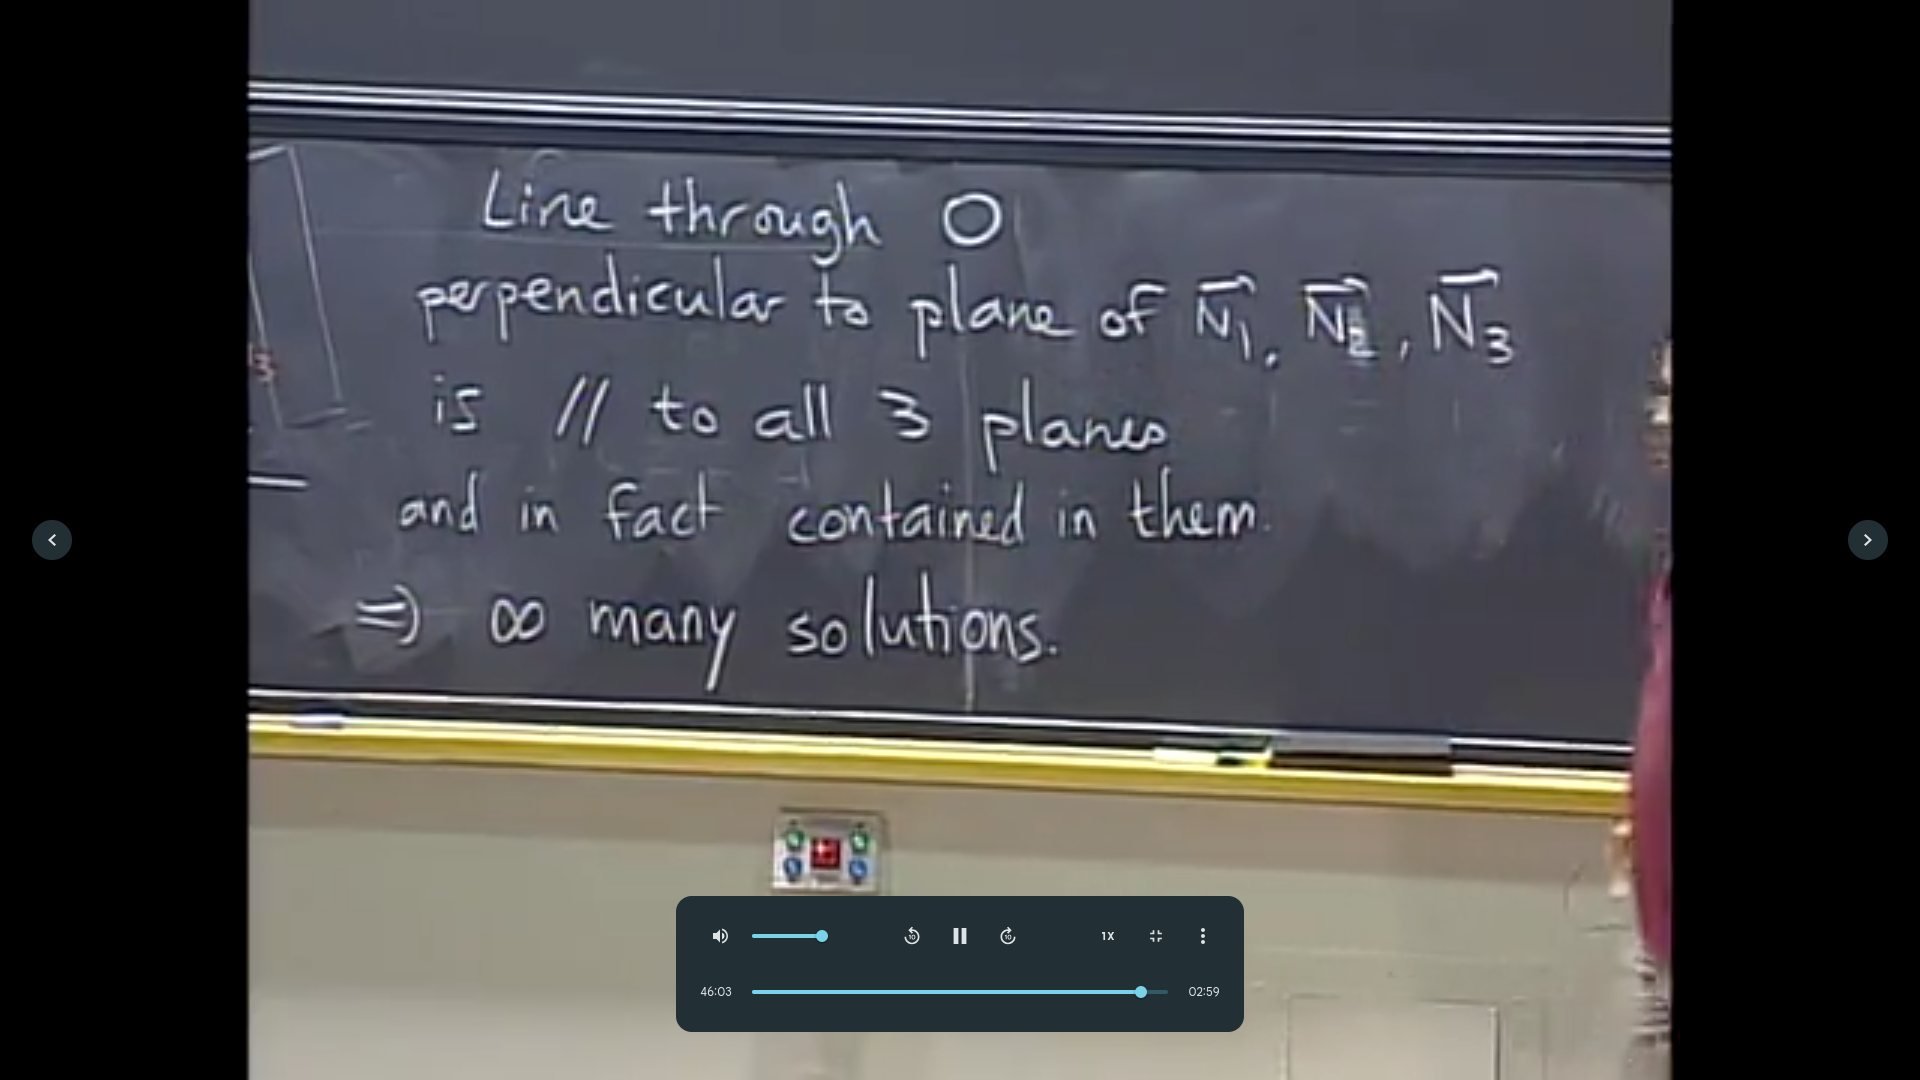 Line through O
perpendicular to plane of N⃗₁, N⃗₂, N⃗₃
is // to all 3 planes
and in fact contained in them.
⇒ ∞ many solutions.
3
10
10
1X
46:03
02:59